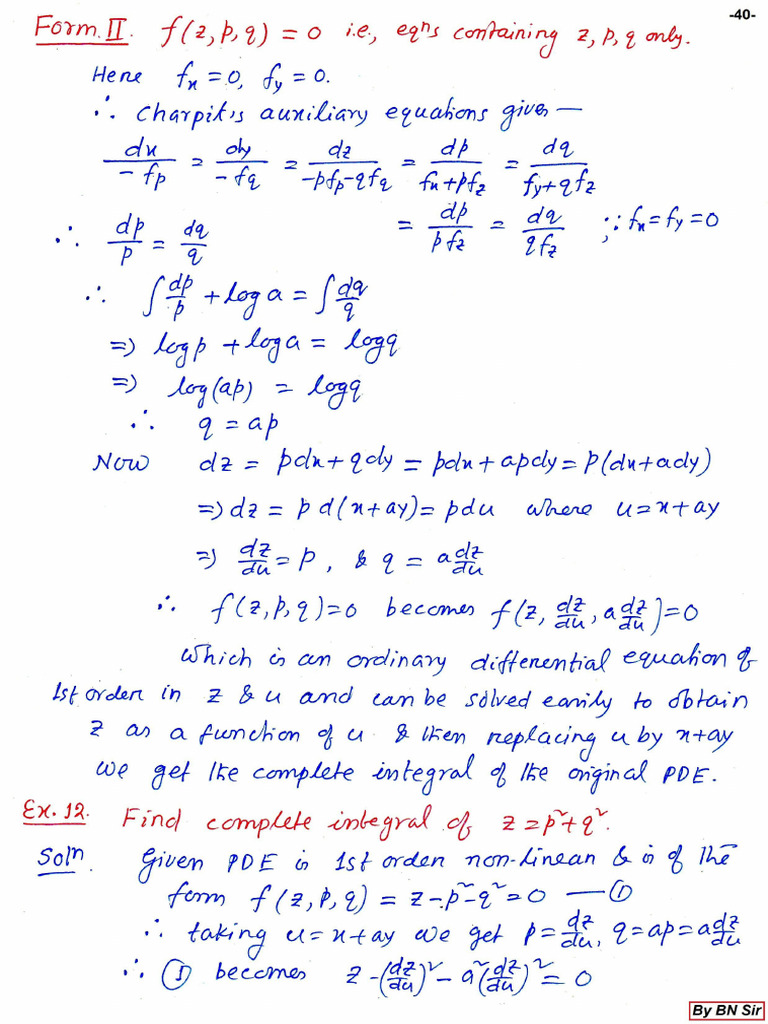 -40-
Form. II. f(z, p, q) = 0 i.e., eqns containing z, p, q only.
Here fx = 0, fy = 0.
∴ Charpit's auxiliary equations given —
dx/-fp = dy/-fq = dz/-pfp-qfq = dp/fx+pfz = dq/fy+qfz
= dp/pfz = dq/qfz ∵ fx = fy = 0
∴ dp/p = dq/q
∴ ∫dp/p + log a = ∫dq/q
⇒ log p + log a = log q
⇒ log(ap) = log q
∴ q = ap
Now dz = pdx + qdy = pdx + apdy = p(dx+ady)
⇒ dz = p d(x+ay) = pdu where u = x+ay
⇒ dz/du = p, & q = a dz/du
∴ f(z,p,q)=0 becomes f(z, dz/du, a dz/du) = 0
which is an ordinary differential equation of
1st order in z & u and can be solved easily to obtain
z as a function of u & then replacing u by x+ay
we get the complete integral of the original PDE.
Ex. 12. Find complete integral of z = p²+q².
Soln. Given PDE is 1st order non-linear & is of the
form f(z, p, q) = z - p² - q² = 0 — ①
∴ taking u = x+ay we get p = dz/du, q = ap = a dz/du
∴ ① becomes z - (dz/du)² - a²(dz/du)² = 0
By BN Sir